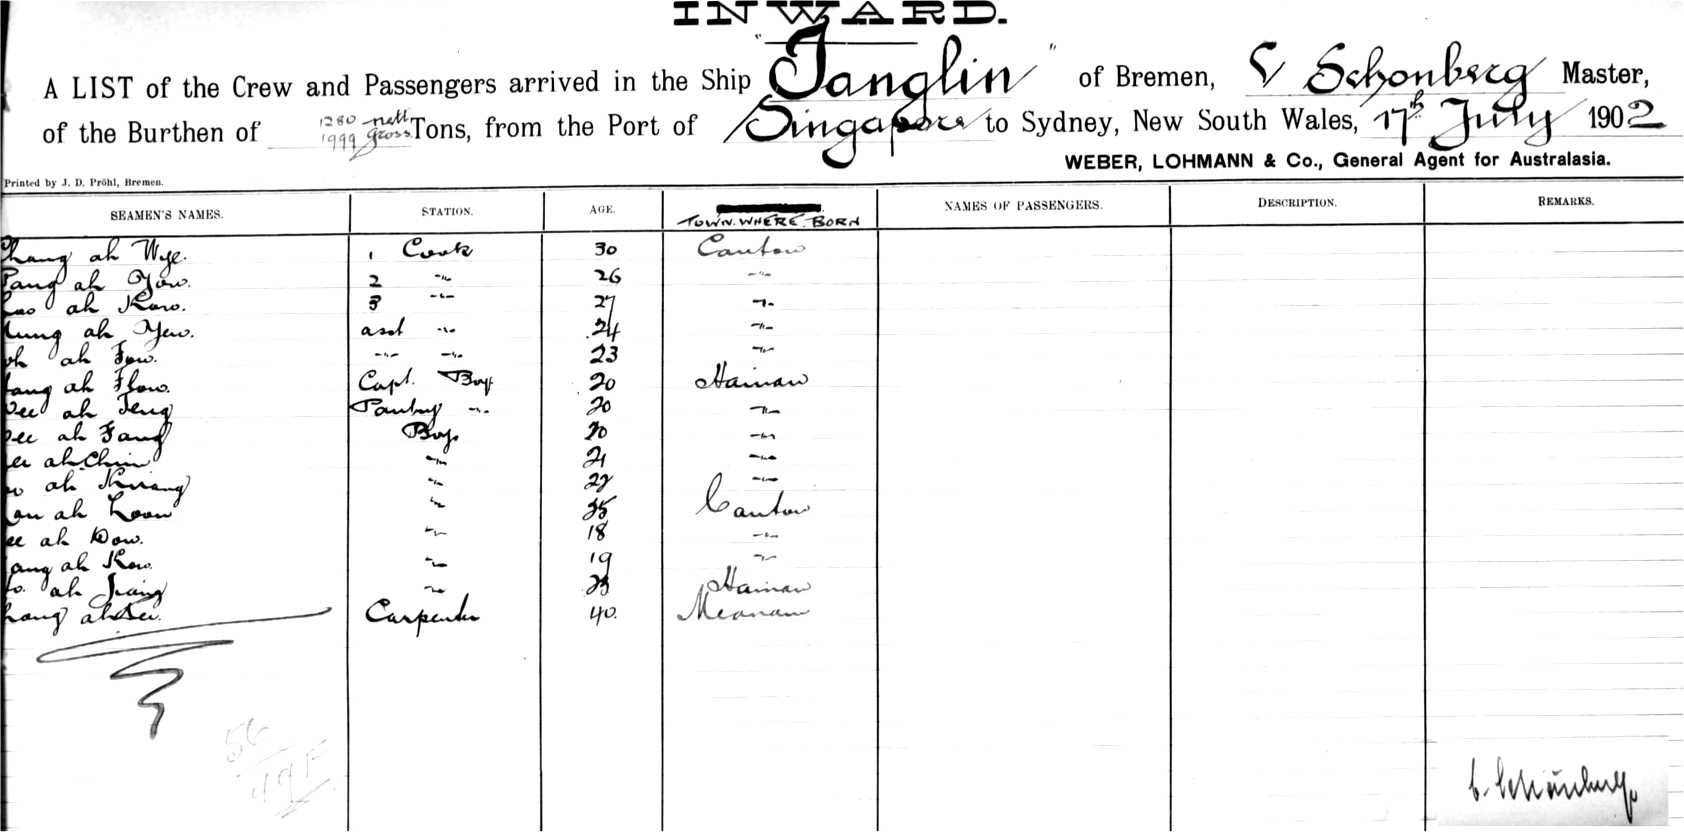 INWARD.
A LIST of the Crew and Passengers arrived in the Ship "Tanglin" of Bremen, C Schonberg Master,
of the Burthen of 1280 nett 1999 gross Tons, from the Port of Singapore to Sydney, New South Wales, 17th July 1902
WEBER, LOHMANN & Co., General Agent for Australasia.
Printed by J. D. Pröhl, Bremen.
SEAMEN'S NAMES. STATION. AGE. TOWN WHERE BORN NAMES OF PASSENGERS. DESCRIPTION. REMARKS.
Chang ah Wye. 1 Cook 30 Canton
Pang ah Yow. 2 -"- 26 -"-
ah Kow. 3 -"- 27 -"-
ah Yew. asst -"- 24 -"-
ah Fow. -"- -"- 23 -"-
ah Flow. Capt. Boy 20 Hainan
ah Teng Pantry -"- 20 -"-
ah Fang Boy 20 -"-
ah Chin -"- 21 -"-
ah -"- 22 -"-
ah Loon -"- 25 Canton
ah Dow. -"- 18 -"-
ah Kow. -"- 19 -"-
ah -"- 23 Hainan
ah Carpenter 40.
56
49